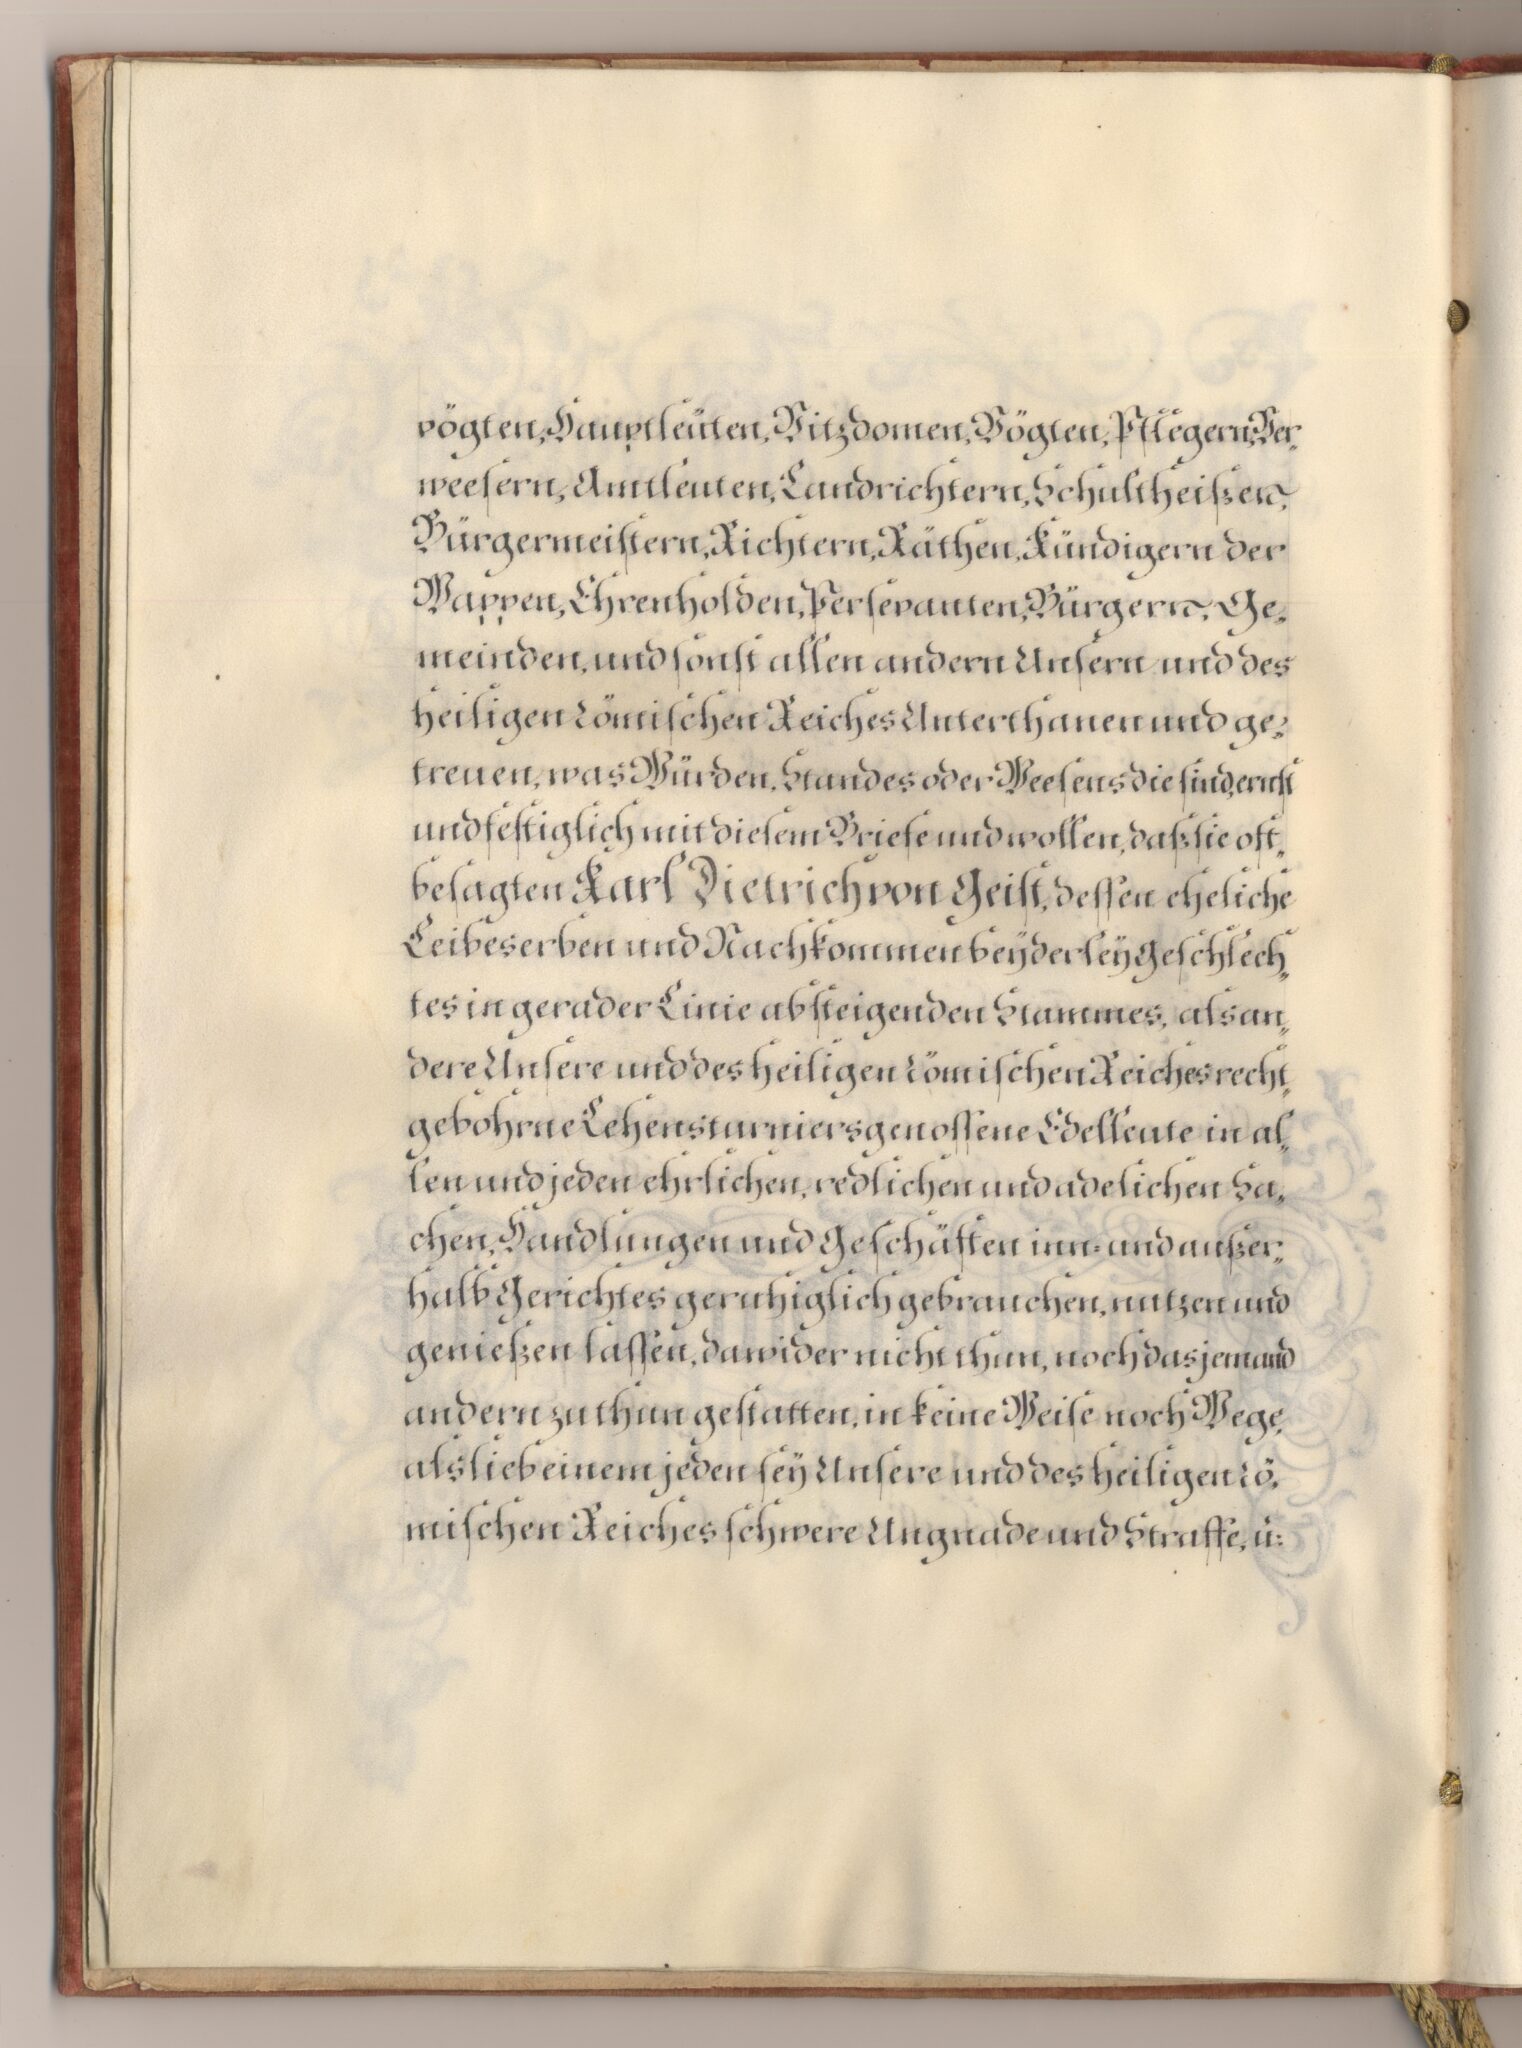 vögten, Hauptleüten, Vitzdomen, Vögten, Pflegern, Ver-
weesern, Amtleuten, Landrichtern, Schultheißen,
Bürgermeistern, Richtern, Räthen, Kündigern der
Wappen, Ehrenholden, Persevanten, Bürgern, Ge-
meinden, und sonst allen andern Unsern und des
heiligen römischen Reiches Unterthanen und ge-
treuen, was Würden, Standes oder Weesens die sind, ernst
und festiglich mit diesem Briefe und wollen, daß sie oft-
besagten Karl Dietrich von Geist, dessen eheliche
Leibeserben und Nachkommen beÿderleÿ Geschlech-
tes in gerader Linie absteigenden Stammes, als an-
dere Unsere und des heiligen römischen Reiches recht-
gebohrne Lehensturniersgenossene Edelleute in al-
len und jeden ehrlichen, redlichen und adelichen Sa-
chen, Handlungen und Geschäften inn- und außer-
halb Gerichtes geruhiglich gebrauchen, nutzen und
genießen lassen, dawider nicht thun, noch das jemand
andern zu thun gestatten, in keine Weise noch Wege,
als lieb einem jeden seÿ Unsere und des heiligen rö-
mischen Reiches schwere Ungnade und Straffe, ü-